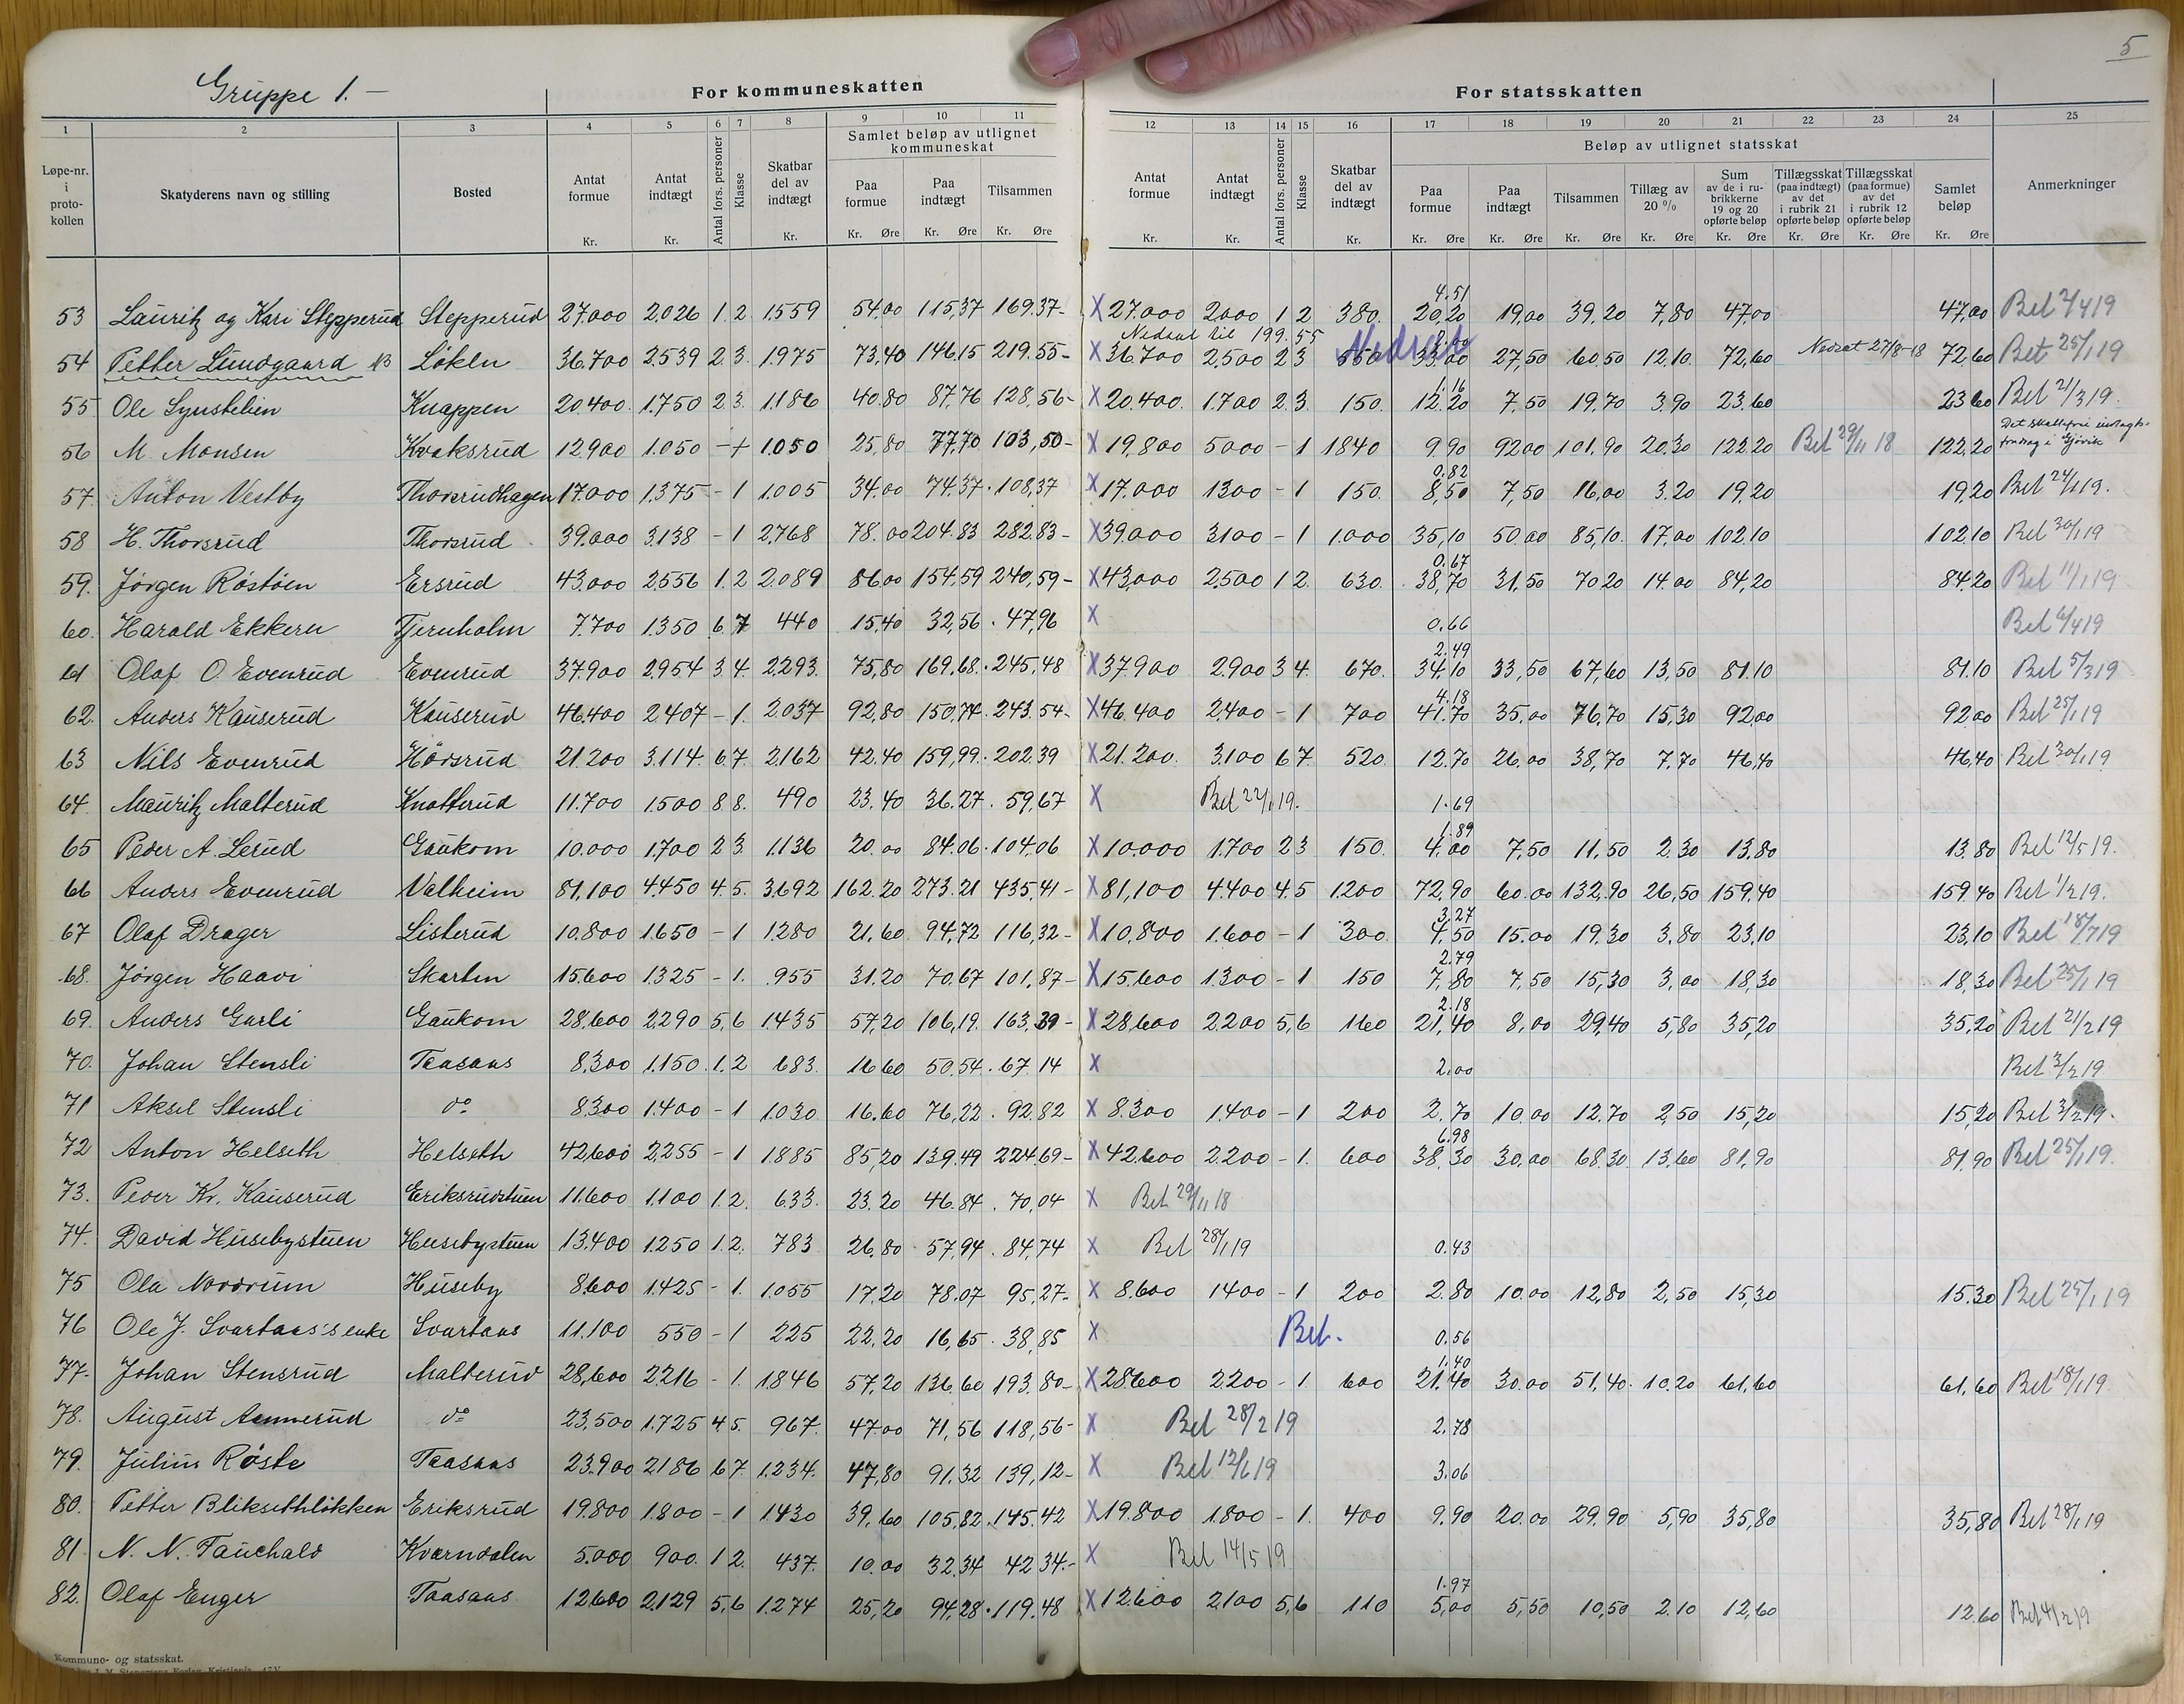 5
Gruppe 1. —
For kommuneskatten
For statsskatten
1 2 3 4 5 6 7 8 9 10 11 12 13 14 15 16 17 18 19 20 21 22 23 24 25
Løpe-nr. i proto-kollen
Skatyderens navn og stilling
Bosted
Antat formue Kr.
Antat indtægt Kr.
Antal fors. personer
Klasse
Skatbar del av indtægt Kr.
Samlet beløp av utlignet kommuneskat
Paa formue Kr. Øre
Paa indtægt Kr. Øre
Tilsammen Kr. Øre
Antat formue Kr.
Antat indtægt Kr.
Antal fors. personer
Klasse
Skatbar del av indtægt Kr.
Beløp av utlignet statsskat
Paa formue Kr. Øre
Paa indtægt Kr. Øre
Tilsammen Kr. Øre
Tillæg av 20 % Kr. Øre
Sum av de i ru-brikkerne 19 og 20 opførte beløp Kr. Øre
Tillægsskat (paa indtægt) av det i rubrik 21 opførte beløp Kr. Øre
Tillægsskat (paa formue) av det i rubrik 12 opførte beløp Kr. Øre
Samlet beløp Kr. Øre
Anmerkninger
4.51
53 Lauritz og Kari Stepperud Stepperud 27.000 2.026 1 2 1559 54.00 115,37 169.37- X 27.000 2000 1 2 380. 20,20 19,00 39,20 7,80 47,00 47,00 Bet 2/4 19
Nedsat til 199.55
54 Petter Lundgaard NB Løken 36.700 2.539 2 3. 1.975 73,40 146,15 219.55- X 36.700 2.500 2 3 550 Nedsat 33,00 27,50 60,50 12.10. 72,60 Nedsat 27/8-18 72,60 Bet 25/1 19
1.16
55 Ole Synstelien Knappen 20.400. 1.750 2 3. 1.186 40.80 87,76 128,56- X 20.400. 1.700 2 3. 150. 12.20 7,50 19,70 3,90 23,60 23,60 Bet 21/3 19.
Det skattefrie indtægts-fradrag i Gjøvik
56 M. Monsen Kvaksrud 12.900 1.050 - + 1.050 25,80 77,70 103,50- X 19,800 5000 - 1 1840 9,90 92,00 101,90 20,30 122,20 Bet 29/11 18 122,20
0.82
57. Anton Vestby Thorsrudhagen 17.000 1.375 - 1 1.005 34.00 74.37. 108,37 X 17.000 1300 - 1 150. 8,50 7,50 16,00 3,20 19,20 19,20 Bet 24/1 19.
58 H. Thorsrud Thorsrud 39.000 3.138 - 1 2.768 78.00 204.83 282.83- X 39.000 3100 - 1 1.000 35,10 50.00 85,10. 17,00 102.10 102.10 Bet 30/1 19
0.67
59. Jørgen Røstøen Ersrud 43.000 2.556 1.2 2.089 86.00 154.59 240,59- X 43,000 2500 1 2. 630. 38,70 31,50 70,20 14.00 84,20 84,20 Bet 11/1 19
60. Harald Ekkern Tjernholm 7.700 1.350 6 7 440 15.40 32,56. 47,96 X 0.66 Bet 6/4 19
2.49
61 Olaf O. Evenrud Evenrud 37.900 2.954 3 4. 2.293. 75,80 169,68. 245,48 X 37.900 2900 3 4. 670. 34,10 33,50 67,60 13,50 81.10 81.10 Bet 5/3 19
4.18
62. Anders Kauserud Kauserud 46.400 2.407 - 1. 2.037 92,80 150,74. 243.54- X 46.400 2.400 - 1 700 41.70 35,00 76,70 15,30 92,00 92,00 Bet 25/1 19
63 Nils Evenrud Hørsrud 21.200 3.114. 6 7. 2162 42.40 159,99. 202.39 X 21.200. 3.100 6 7. 520. 12.70 26,00 38,70 7.70 46,40 46,40 Bet 30/1 19
64. Mauritz Malterud Knatterud 11.700 1.500 8 8. 490 23.40 36.27. 59,67 X Bet 22/1 19. 1.69
1.89
65 Peder A. Lerud Gaukom 10.000 1.700 2 3. 1.136 20.00 84.06. 104.06 X 10.000 1.700 2 3 150. 4,00 7,50 11,50 2,30 13,80 13,80 Bet 12/5 19.
66 Anders Evenrud Valheim 81,100 4.450 4. 5. 3.692 162.20 273.21 435,41- X 81,100 4.400 4 5 1200 72,90 60.00 132,90 26,50 159,40 159.40 Bet 1/2 19.
3.27
67 Olaf Drager Listerud 10.800 1.650 - 1 1.280 21.60 94,72 116,32- X 10,800 1.600 - 1 300. 4,50 15.00 19,30 3,80 23,10 23,10 Bet 18/7 19
2.79
68. Jørgen Haavi Skarten 15.600 1.325 - 1. 955 31.20 70.67 101,87- X 15.600 1.300 - 1 150 7,80 7,50 15,30 3,00 18,30 18,30 Bet 25/1 19
2.18
69. Anders Garli Gaukom 28,600 2.290 5,6 1.435 57,20 106,19. 163,39- X 28.600 2.200 5,6 160 21,40 8,00 29,40 5,80 35,20 35,20 Bet 21/2 19
70. Johan Stensli Taasaas 8,300 1.150. 1.2 683. 16.60 50.54. 67.14 X 2.00 Bet 3/2 19
71 Aksel Stensli do 8.300 1.400 - 1 1.030 16.60 76,22. 92.82 X 8.300 1.400 - 1 200 2.70 10.00 12.70 2,50 15,20 15,20 Bet 3/2 19.
6.98
72 Anton Helseth Helseth 42,600 2.255 - 1 1.885 85,20 139.49 224.69- X 42.600 2.200 - 1. 600 38,30 30.00 68.30. 13,60 81,90 81.90 Bet 25/1 19.
73. Peder Kr. Kauserud Eriksrudstuen 11.600 1.100 1.2. 633. 23.20 46.84. 70,04 X Bet 29/11 18
74. David Husebystuen Husebystuen 13.400 1.250 1.2. 783 26.80. 57,94. 84,74 X Bet 28/1 19 0.43
75 Ola Nordrum Huseby 8.600 1.425 - 1. 1.055 17.20 78.07 95,27- X 8.600 1400 - 1 200 2.80 10.00 12,80 2,50 15,30 15.30 Bet 25/1 19
76 Ole J. Svartaas's enke Svartaas 11.100 550 - 1 225 22,20 16,65. 38,85 X Bet. 0.56
1.40
77. Johan Stensrud Malterud 28,600 2.216 - 1. 1.846 57.20 136,60 193.80- X 28600 2.200 - 1 600 21.40 30.00 51,40. 10.20 61,60 61,60 Bet 18/1 19
78. August Amnerud do 23,500 1.725 4 5. 967. 47.00 71,56 118,56- X Bet 28/2 19 2.78
79. Julius Røste Taasaas 23.900 2.186 6 7. 1.234. 47,80 91.32 139,12- X Bet 12/6 19 3.06
80. Petter Bliksethløkken Eriksrud 19.800 1.800 - 1 1.430 39,60 105,82. 145.42 X 19.800 1.800 - 1. 400 9.90 20.00 29.90 5,90 35,80 35,80 Bet 28/1 19
81. N. N. Fauchald Kværndalen 5.000 900. 1 2. 437. 10.00 32.34 42.34.- X Bet 14/5 19
1.97
82. Olaf Enger Taasaas 12.600 2.129 5,6 1.274 25,20 94,28. 119.48 X 12.600 2,100 5,6 110 5,00 5,50 10,50 2.10 12,60 12.60 Bet 4/2 19
Kommune- og statsskat.